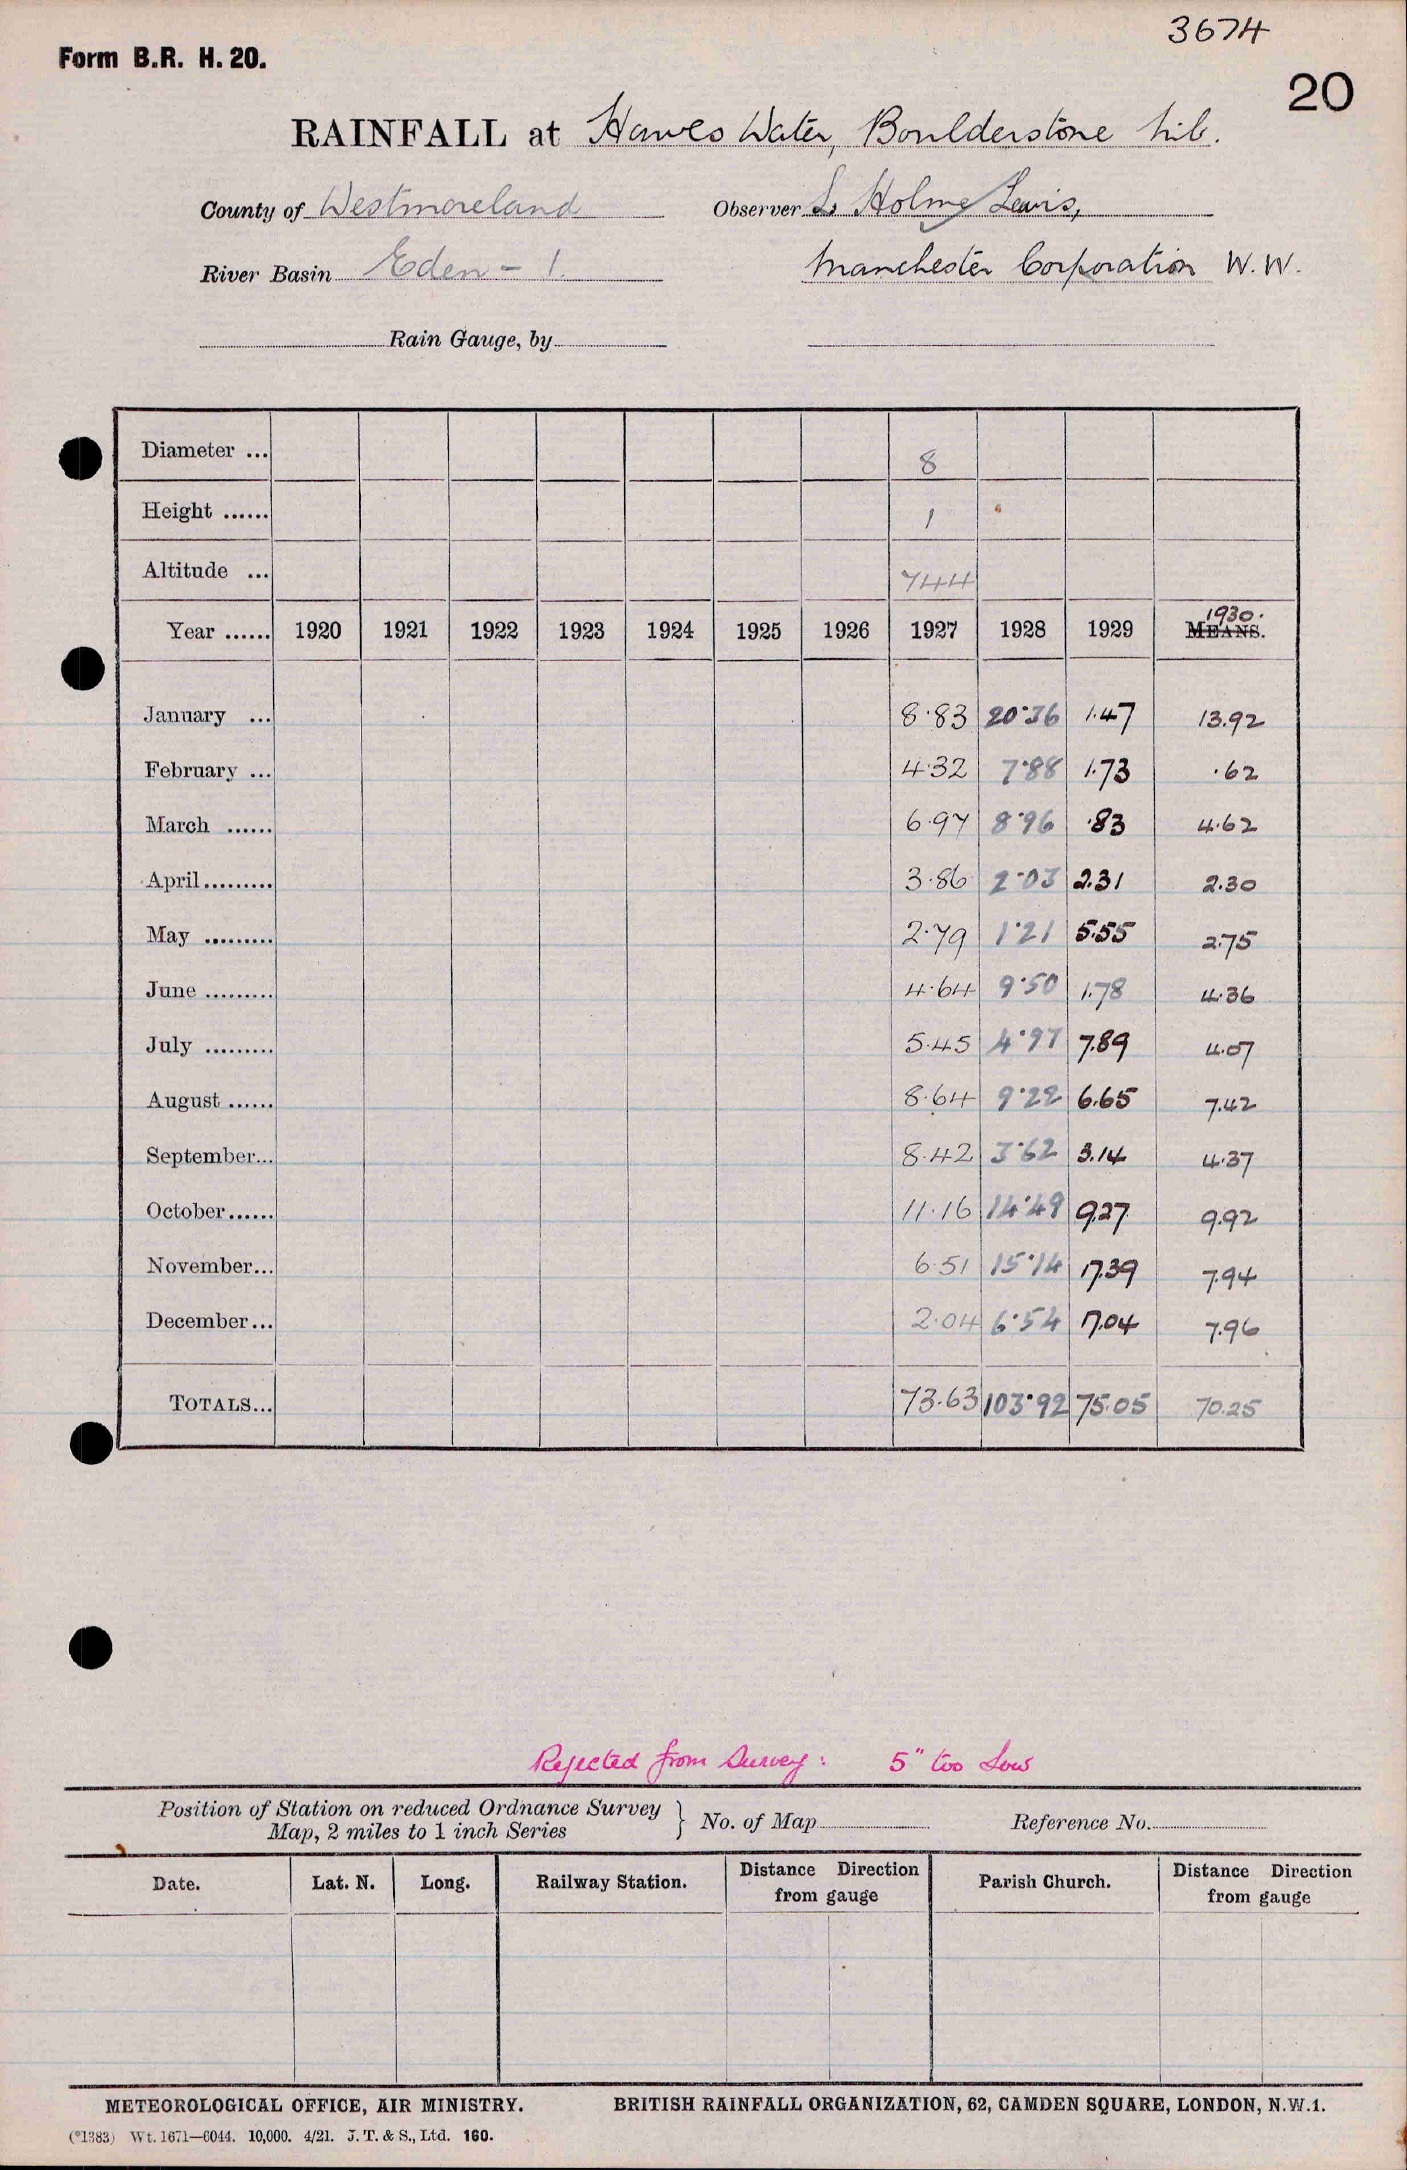 3674
Form B.R. H. 20.
20
RAINFALL at Hawes Water, Boulderstone
County of Westmoreland Observer L. Holme Lewis,
River Basin Eden - 1. Manchester Corporation W.W.
Rain Gauge, by
Diameter ... 8
Height ...... 1
Altitude ... 744
1930.
Year ...... 1920 1921 1922 1923 1924 1925 1926 1927 1928 1929 MEANS.
January ... 8.83 20.36 1.47 13.92
February ... 4.32 7.88 1.73 .62
March ...... 6.97 8.96 .83 4.62
April ......... 3.86 2.03 2.31 2.30
May ......... 2.79 1.21 5.55 2.75
June ......... 4.64 9.50 1.78 4.36
July ......... 5.45 4.97 7.89 4.07
August ...... 8.64 9.22 6.65 7.42
September... 8.42 3.62 3.14 4.37
October...... 11.16 14.49 9.27 9.92
November... 6.51 15.14 17.39 7.94
December... 2.04 6.54 17.04 7.96
TOTALS... 73.63 103.92 75.05 70.25
Rejected from Survey: 5" too low
Position of Station on reduced Ordnance Survey
Map, 2 miles to 1 inch Series } No. of Map Reference No.
Date. Lat. N. Long. Railway Station. Distance Direction from gauge Parish Church. Distance Direction from gauge
METEOROLOGICAL OFFICE, AIR MINISTRY. BRITISH RAINFALL ORGANIZATION, 62, CAMDEN SQUARE, LONDON, N.W.1.
(*1383) Wt. 1671—6044. 10,000. 4/21. J. T. & S., Ltd. 160.